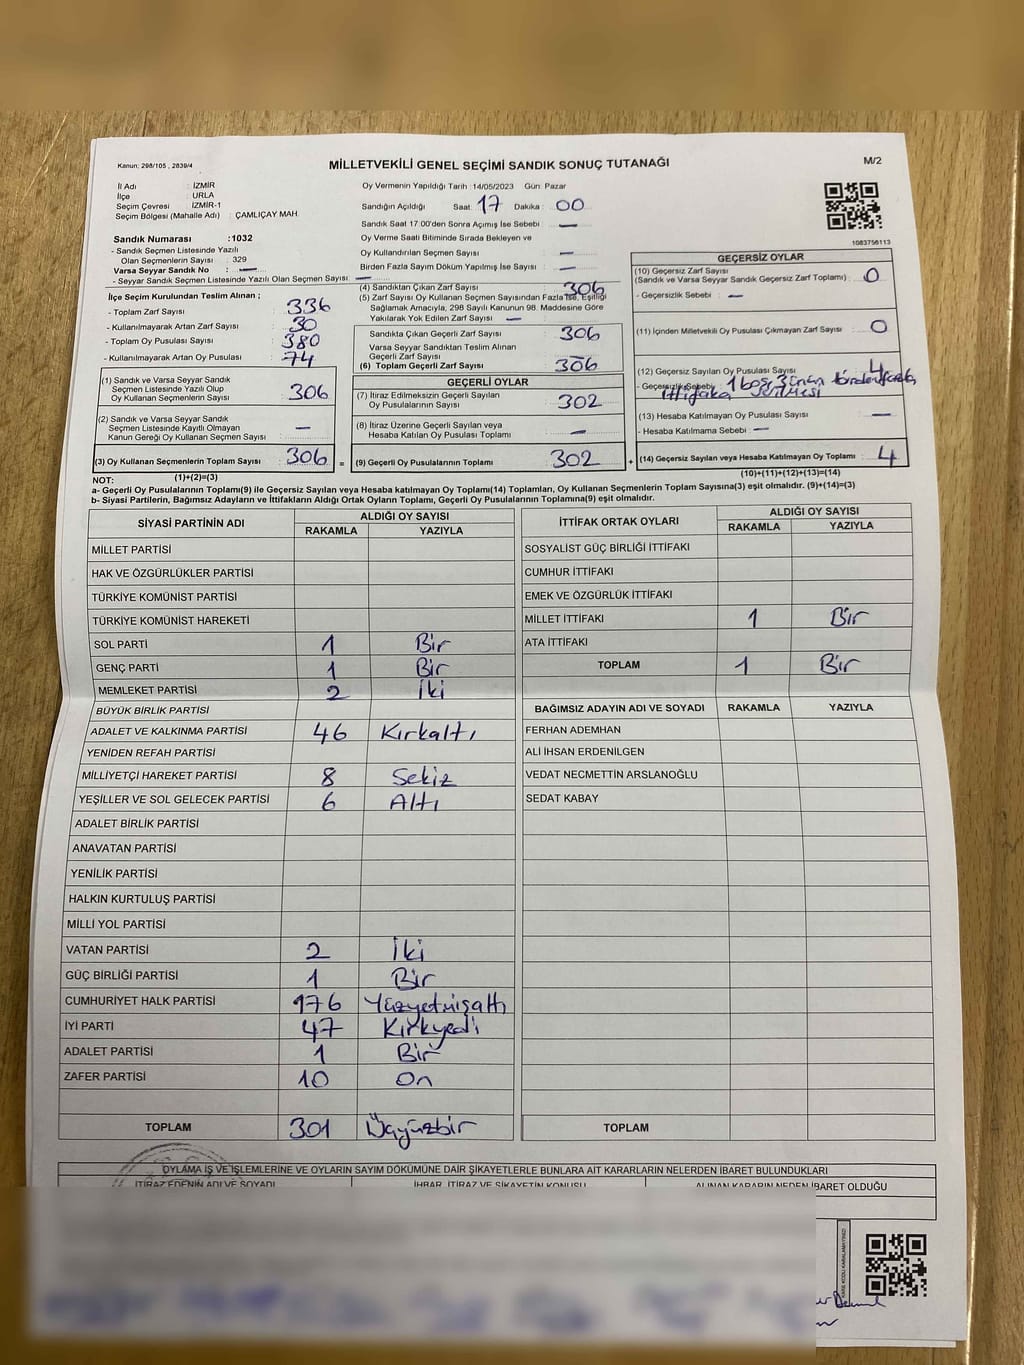 Kanun: 298/105 , 2839/4
MİLLETVEKİLİ GENEL SEÇİMİ SANDIK SONUÇ TUTANAĞI
M/2
İl Adı : İZMİR
İlçe : URLA
Seçim Çevresi : İZMİR-1
Seçim Bölgesi (Mahalle Adı) : ÇAMLIÇAY MAH.
Oy Vermenin Yapıldığı Tarih :14/05/2023 Gün: Pazar
Sandığın Açıldığı Saat: 17 Dakika : 00
Sandık Saat 17.00'den Sonra Açımış İse Sebebi : —
Sandık Numarası :1032
- Sandık Seçmen Listesinde Yazılı
Olan Seçmenlerin Sayısı : 329
Varsa Seyyar Sandık No : —
- Seyyar Sandık Seçmen Listesinde Yazılı Olan Seçmen Sayısı: —
Oy Verme Saati Bitiminde Sırada Bekleyen ve
Oy Kullandırılan Seçmen Sayısı : —
Birden Fazla Sayım Döküm Yapılmış İse Sayısı : —
1083756113
İlçe Seçim Kurulundan Teslim Alınan ;
- Toplam Zarf Sayısı : 336
- Kullanılmayarak Artan Zarf Sayısı : 30
- Toplam Oy Pusulası : 380
- Kullanılmayarak Artan Oy Pusulası : 74
(1) Sandık ve Varsa Seyyar Sandık
Seçmen Listesinde Yazılı Olup
Oy Kullanan Seçmenlerin Sayısı : 306
(2) Sandık ve Varsa Seyyar Sandık
Seçmen Listesinde Kayıtlı Olmayan
Kanun Gereği Oy Kullanan Seçmen Sayısı : —
(3) Oy Kullanan Seçmenlerin Toplam Sayısı : 306 =
(4) Sandıktan Çıkan Zarf Sayısı : 306
(5) Zarf Sayısı Oy Kullanan Seçmen Sayısından Fazla İse, Eşitliği
Sağlamak Amacıyla, 298 Sayılı Kanunun 98. Maddesine Göre
Yakılarak Yok Edilen Zarf Sayısı : —
Sandıkta Çıkan Geçerli Zarf Sayısı : 306
Varsa Seyyar Sandıktan Teslim Alınan
Geçerli Zarf Sayısı : —
(6) Toplam Geçerli Zarf Sayısı : 306
GEÇERLİ OYLAR
(7) İtiraz Edilmeksizin Geçerli Sayılan
Oy Pusulalarının Sayısı : 302
(8) İtiraz Üzerine Geçerli Sayılan veya
Hesaba Katılan Oy Pusulası Toplamı : —
(9) Geçerli Oy Pusulalarının Toplamı : 302 +
GEÇERSİZ OYLAR
(10) Geçersiz Zarf Sayısı
(Sandık ve Varsa Seyyar Sandık Geçersiz Zarf Toplamı) : 0
- Geçersizlik Sebebi : —
(11) İçinden Milletvekili Oy Pusulası Çıkmayan Zarf Sayısı : 0
(12) Geçersiz Sayılan Oy Pusulası Sayısı : 4
- Geçersizlik Sebebi : 1 boş,
ittifaka
(13) Hesaba Katılmayan Oy Pusulası Sayısı : —
- Hesaba Katılmama Sebebi : —
(14) Geçersiz Sayılan veya Hesaba Katılmayan Oy Toplamı : 4
NOT: (1)+(2)=(3)
(10)+(11)+(12)+(13)=(14)
a- Geçerli Oy Pusulalarının Toplamı(9) ile Geçersiz Sayılan veya Hesaba katılmayan Oy Toplamı(14) Toplamları, Oy Kullanan Seçmenlerin Toplam Sayısına(3) eşit olmalıdır. (9)+(14)=(3)
b- Siyasi Partilerin, Bağımsız Adayların ve İttifakların Aldığı Ortak Oyların Toplamı, Geçerli Oy Pusulalarının Toplamına(9) eşit olmalıdır.
SİYASİ PARTİNİN ADI ALDIĞI OY SAYISI
RAKAMLA YAZIYLA
MİLLET PARTİSİ
HAK VE ÖZGÜRLÜKLER PARTİSİ
TÜRKİYE KOMÜNİST PARTİSİ
TÜRKİYE KOMÜNİST HAREKETİ
SOL PARTİ 1 Bir
GENÇ PARTİ 1 Bir
MEMLEKET PARTİSİ 2 İki
BÜYÜK BİRLİK PARTİSİ
ADALET VE KALKINMA PARTİSİ 46 Kırkaltı
YENİDEN REFAH PARTİSİ
MİLLİYETÇİ HAREKET PARTİSİ 8 Sekiz
YEŞİLLER VE SOL GELECEK PARTİSİ 6 Altı
ADALET BİRLİK PARTİSİ
ANAVATAN PARTİSİ
YENİLİK PARTİSİ
HALKIN KURTULUŞ PARTİSİ
MİLLİ YOL PARTİSİ
VATAN PARTİSİ 2 İki
GÜÇ BİRLİĞİ PARTİSİ 1 Bir
CUMHURİYET HALK PARTİSİ 176 Yüzyetmişaltı
İYİ PARTİ 47 Kırkyedi
ADALET PARTİSİ 1 Bir
ZAFER PARTİSİ 10 On
TOPLAM 301 Üçyüzbir
İTTİFAK ORTAK OYLARI ALDIĞI OY SAYISI
RAKAMLA YAZIYLA
SOSYALİST GÜÇ BİRLİĞİ İTTİFAKI
CUMHUR İTTİFAKI
EMEK VE ÖZGÜRLÜK İTTİFAKI
MİLLET İTTİFAKI 1 Bir
ATA İTTİFAKI
TOPLAM 1 Bir
BAĞIMSIZ ADAYIN ADI VE SOYADI RAKAMLA YAZIYLA
FERHAN ADEMHAN
ALİ İHSAN ERDENİLGEN
VEDAT NECMETTİN ARSLANOĞLU
SEDAT KABAY
TOPLAM
OYLAMA İŞ VE İŞLEMLERİNE VE OYLARIN SAYIM DÖKÜMÜNE DAİR ŞİKAYETLERLE BUNLARA AİT KARARLARIN NELERDEN İBARET BULUNDUKLARI
İTİRAZ EDENİN ADI VE SOYADI İHBAR, İTİRAZ VE ŞİKAYETİN KONUSU ALINAN KARARIN NEDEN İBARET OLDUĞU